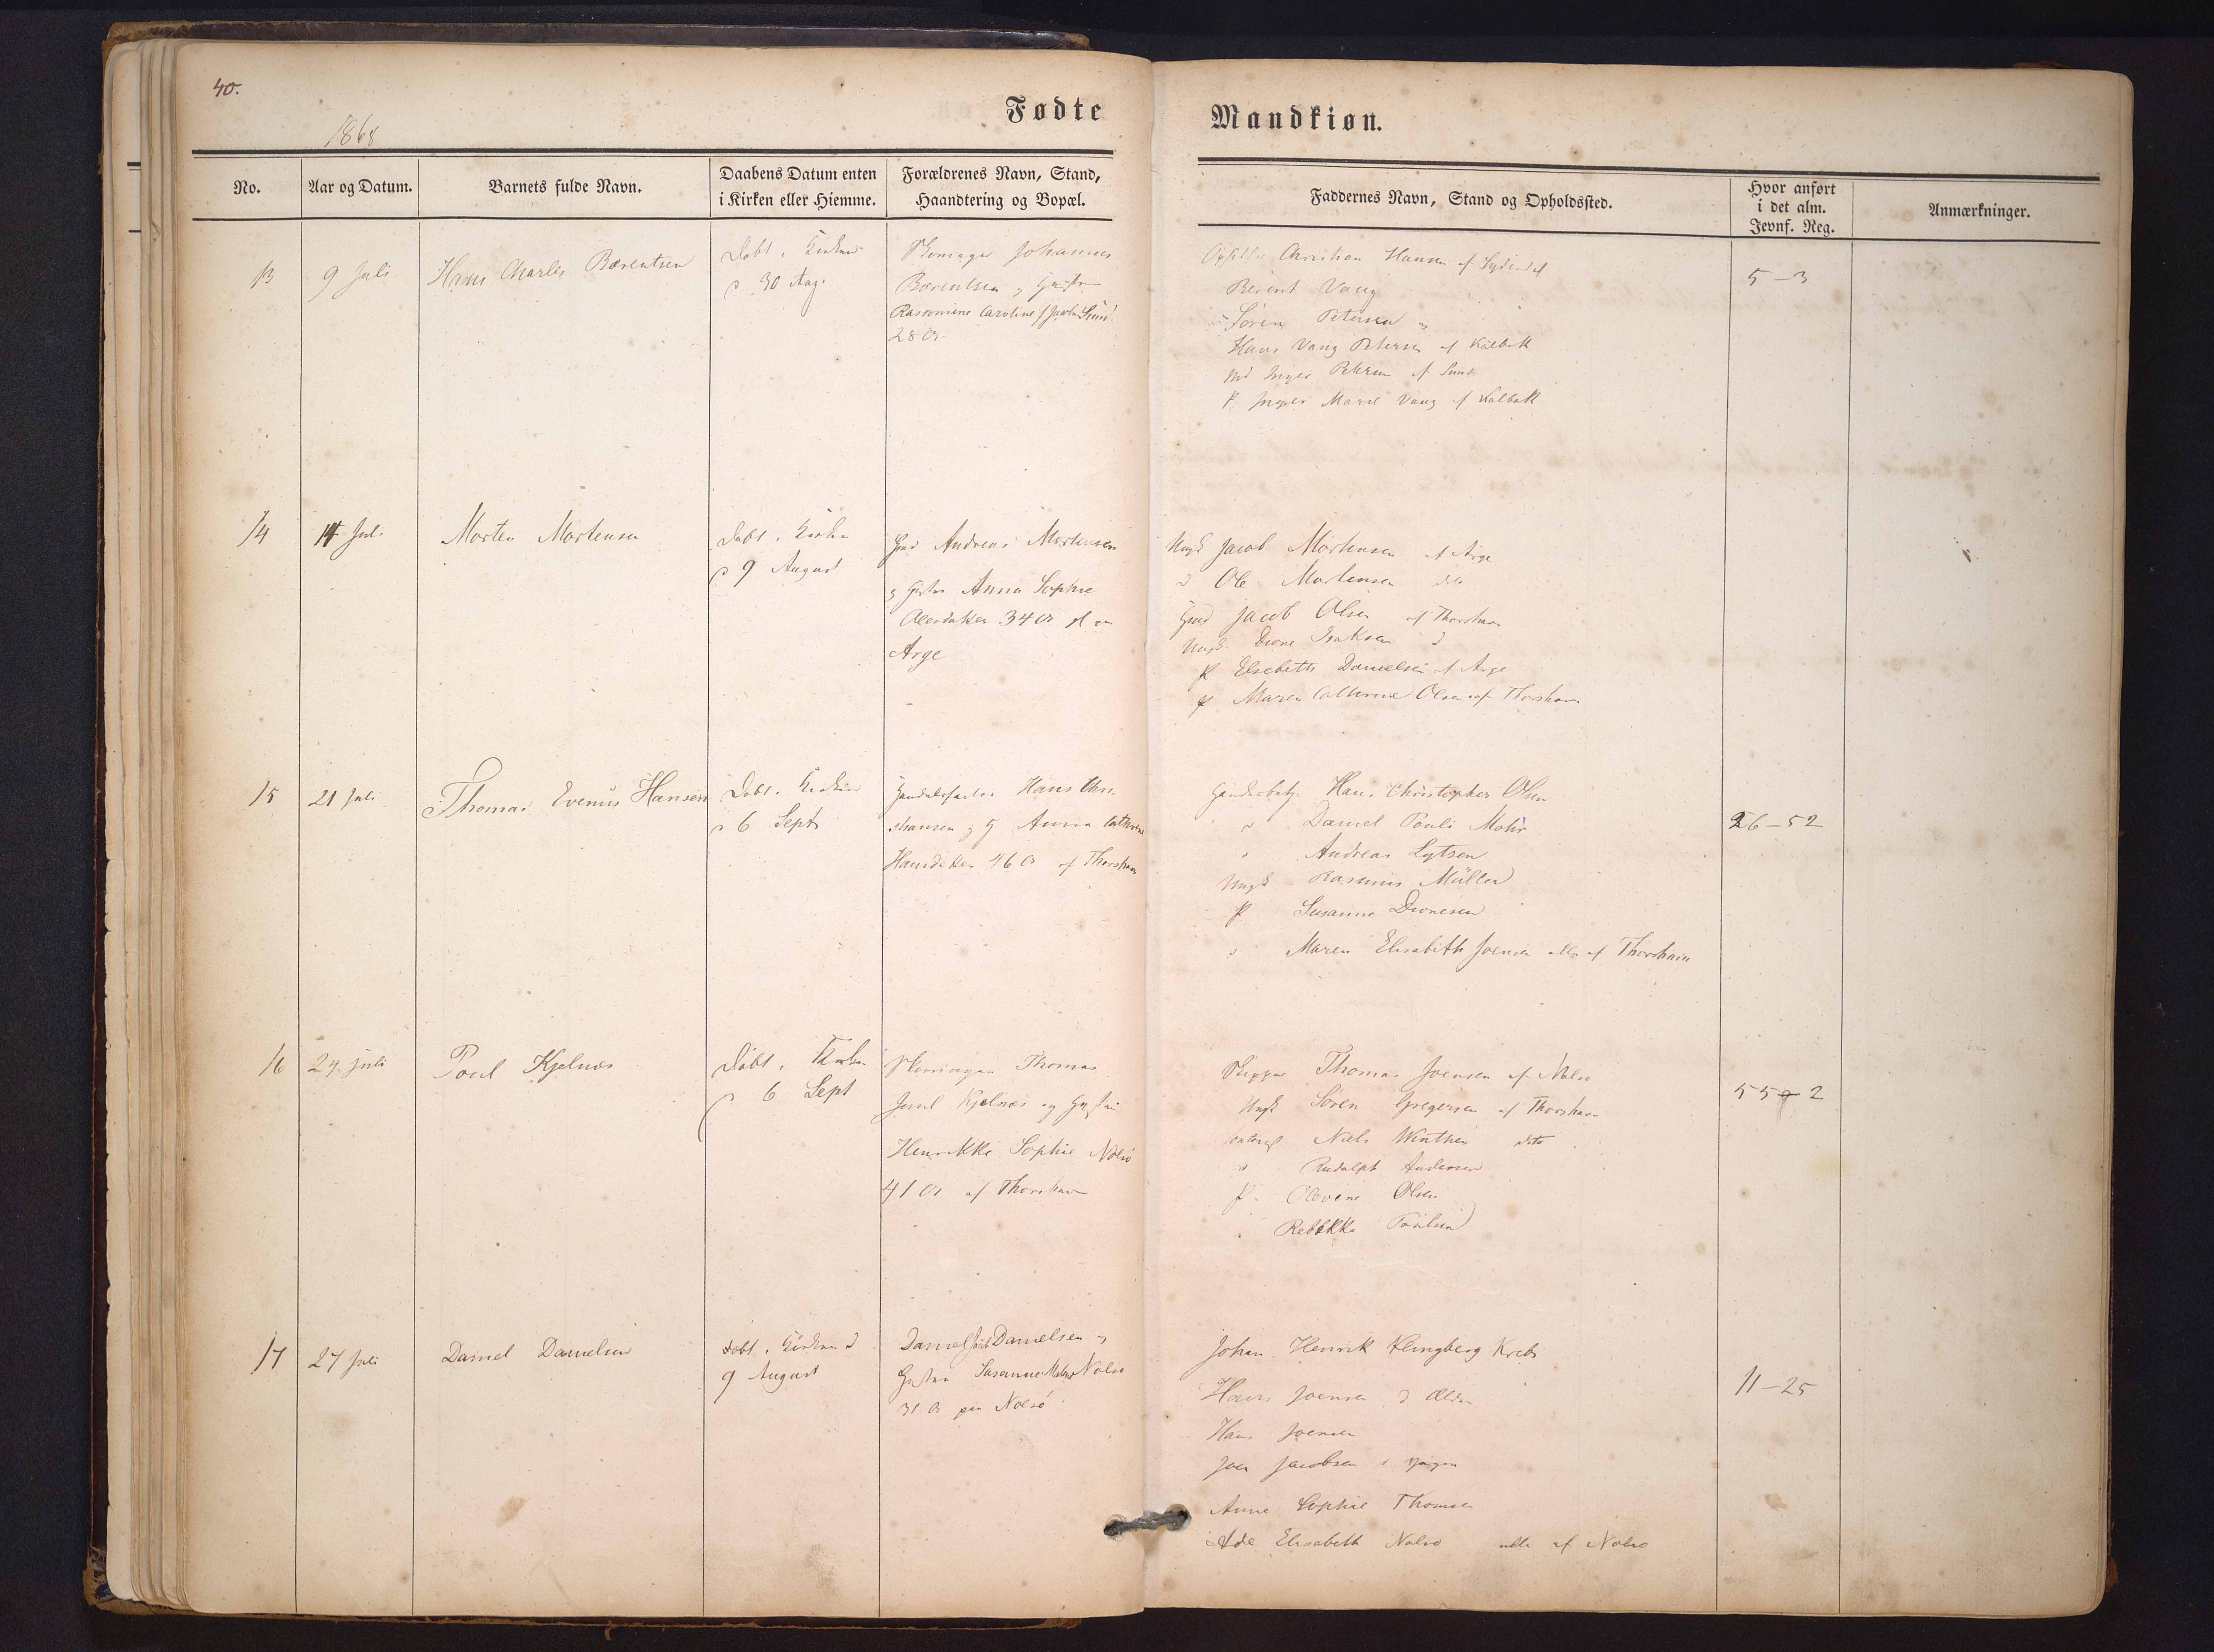 40.
1868
Fødte
Mandkiøn.
No.
Aar og Datum.
Barnets fulde Navn.
Daabens Datum enten
i Kirken eller Hiemme.
Forældrenes Navn, Stand,
Haandtering og Bopæl.
Faddernes Navn, Stand og Opholdssted.
Hvor anført
i det alm.
Jevnf. Reg.
Anmærkninger.
13
9 Juli
Hans Charles Bærentsen
Døbt i Kirken
d 30 Aug.
Johannes
Bærentsen og Hustru
Caroline
28 Ar
Christian Hansen af
Berint Vang
Sören Petersen
Hans Vang Petersen af Kalbak
Inger Petersen af Sund
P. Inger Marie Vang af Kalbak
5-3
14
14 Juli
Morten Mortensen
Døbt i Kirken
d 9 August
Andreas Mortensen
og Hustru Anna Sophie
Olesdatter 34 Ar
Arge
Ungk Jacob Mortensen af Arge
d Ole Mortensen dito
Jacob Olsen af Thorshavn
Ungk. Isaksen d
P Elsebeth Danielsen af Arge
P Maren Cathrine Olsen af Thorshavn
15
21 Juli
Thomas Evenus Hansen
Døbt i Kirken
d 6 Sept
Hans Chri-
stiansen og H Anna Cathrine
Hansdatter 46 Ar af Thorshavn
Hans Christopher Olsen
Daniel Pauli Mohr
Andreas Lützen
Ungk Rasmus Müller
P Susanne
Maren Elisabeth Joensen alle af Thorshavn
26-52
16
24 Juli
Poul Kjelnæs
Døbt i Kirken
d 6 Sept
Thomas
Kjelnæs og Hustru
Henrikke Sophie Nolsö
41 Ar af Thorshavn
Thomas Joensen af Nolsö
Ungk Sören Gregersen af Thorshavn
Niels Winther dito
Rudolph Andersen
P. Olevine Olsen
Rebekka
55-2
17
27 Juli
Daniel Danielsen
Døbt i Kirken d
9 August
Daniel Danielsen og
Hustru Susanne Nolsö
31 Ar paa Nolsö
Johan Henrik Klingberg Krebs
Hans Joensen d Ældre
Hans Joensen
Joen Jacobsen d yngre
Anne Sophie Thomsen
Ade Elisabeth Nolsö alle af Nolsö
11-25